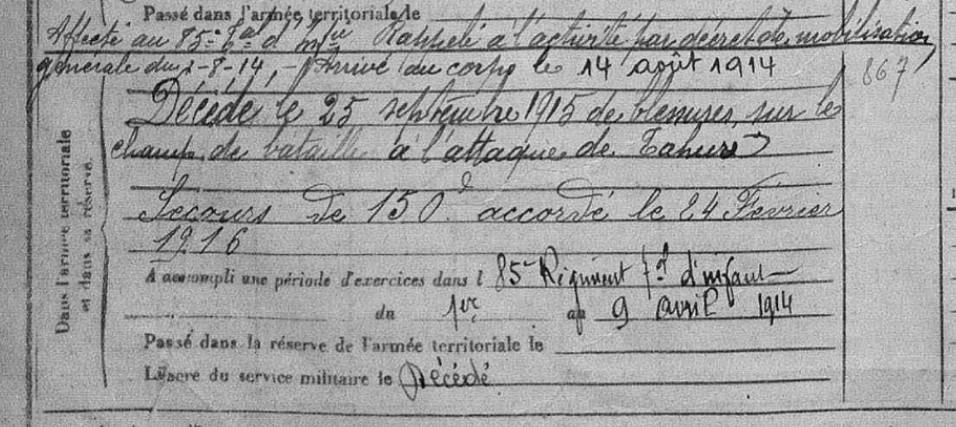 Passé dans l'armée territoriale le
Affecté au 85e Rgt d'Infie Rappelé à l'activité par décret de mobilisation
générale du 1-8-14, - Arrivé au corps le 14 août 1914
867
Décédé le 25 septembre 1915 de blessures sur le
champ de bataille à l'attaque de Tahure
Secours de 150f accordé le 24 Février
1916
Dans l'armée territoriale
et dans sa réserve.
A accompli une période d'exercices dans l 85e Régiment tal d'infant
du 1er au 9 avril 1914
Passé dans la réserve de l'armée territoriale le
Libéré du service militaire le Décédé